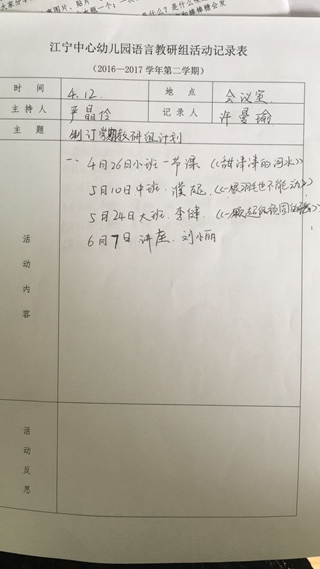 江宁中心幼儿园语言教研组活动记录表
（2016—2017学年第二学期）
时间 4.12. 地点 会议室
主持人 严晶伶 记录人 许曼瑜
主题 制订学期教研组计划
活动内容
一、4月26日小班一节课《甜津津的河水》
5月10日中班、濮 《一根羽毛也不能动》
5月24日大班、李健、《一颗超级顽固的牙》
6月7日 讲座、刘小丽
活动反思